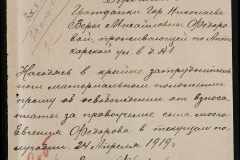 Гражданки Гор. Николаева
Веры Михайловны Федоро
вой, проживающей по Ат
карской ул. в д. №1
Находясь в крайне затруднитель
ном материальном положении
прошу об освобождении от взноса
платы за правоучение сына моего
Евгения Федорова в текущем по
лугодии. 24 Апреля 1919 г.